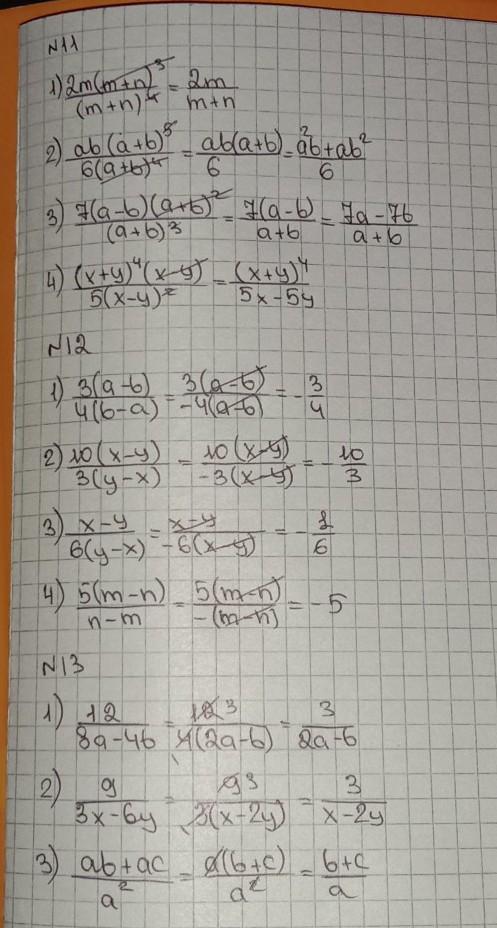 N11
1) 2m(m+n)³/(m+n)⁴ = 2m/(m+n)
2) ab(a+b)⁵/6(a+b)⁴ = ab(a+b)/6 = (a²b+ab²)/6
3) 7(a-b)(a+b)²/(a+b)³ = 7(a-b)/(a+b) = (7a-7b)/(a+b)
4) (x+y)⁴(x-y)/5(x-y)² = (x+y)⁴/(5x-5y)
N12
1) 3(a-b)/4(b-a) = 3(a-b)/-4(a-b) = -3/4
2) 10(x-y)/3(y-x) = 10(x-y)/-3(x-y) = -10/3
3) (x-y)/6(y-x) = (x-y)/-6(x-y) = -1/6
4) 5(m-n)/(n-m) = 5(m-n)/-(m-n) = -5
N13
1) 12/(8a-4b) = 12 3/4(2a-b) = 3/(2a-b)
2) 9/(3x-6y) = 9 3/3(x-2y) = 3/(x-2y)
3) (ab+ac)/a² = a(b+c)/a² = (b+c)/a